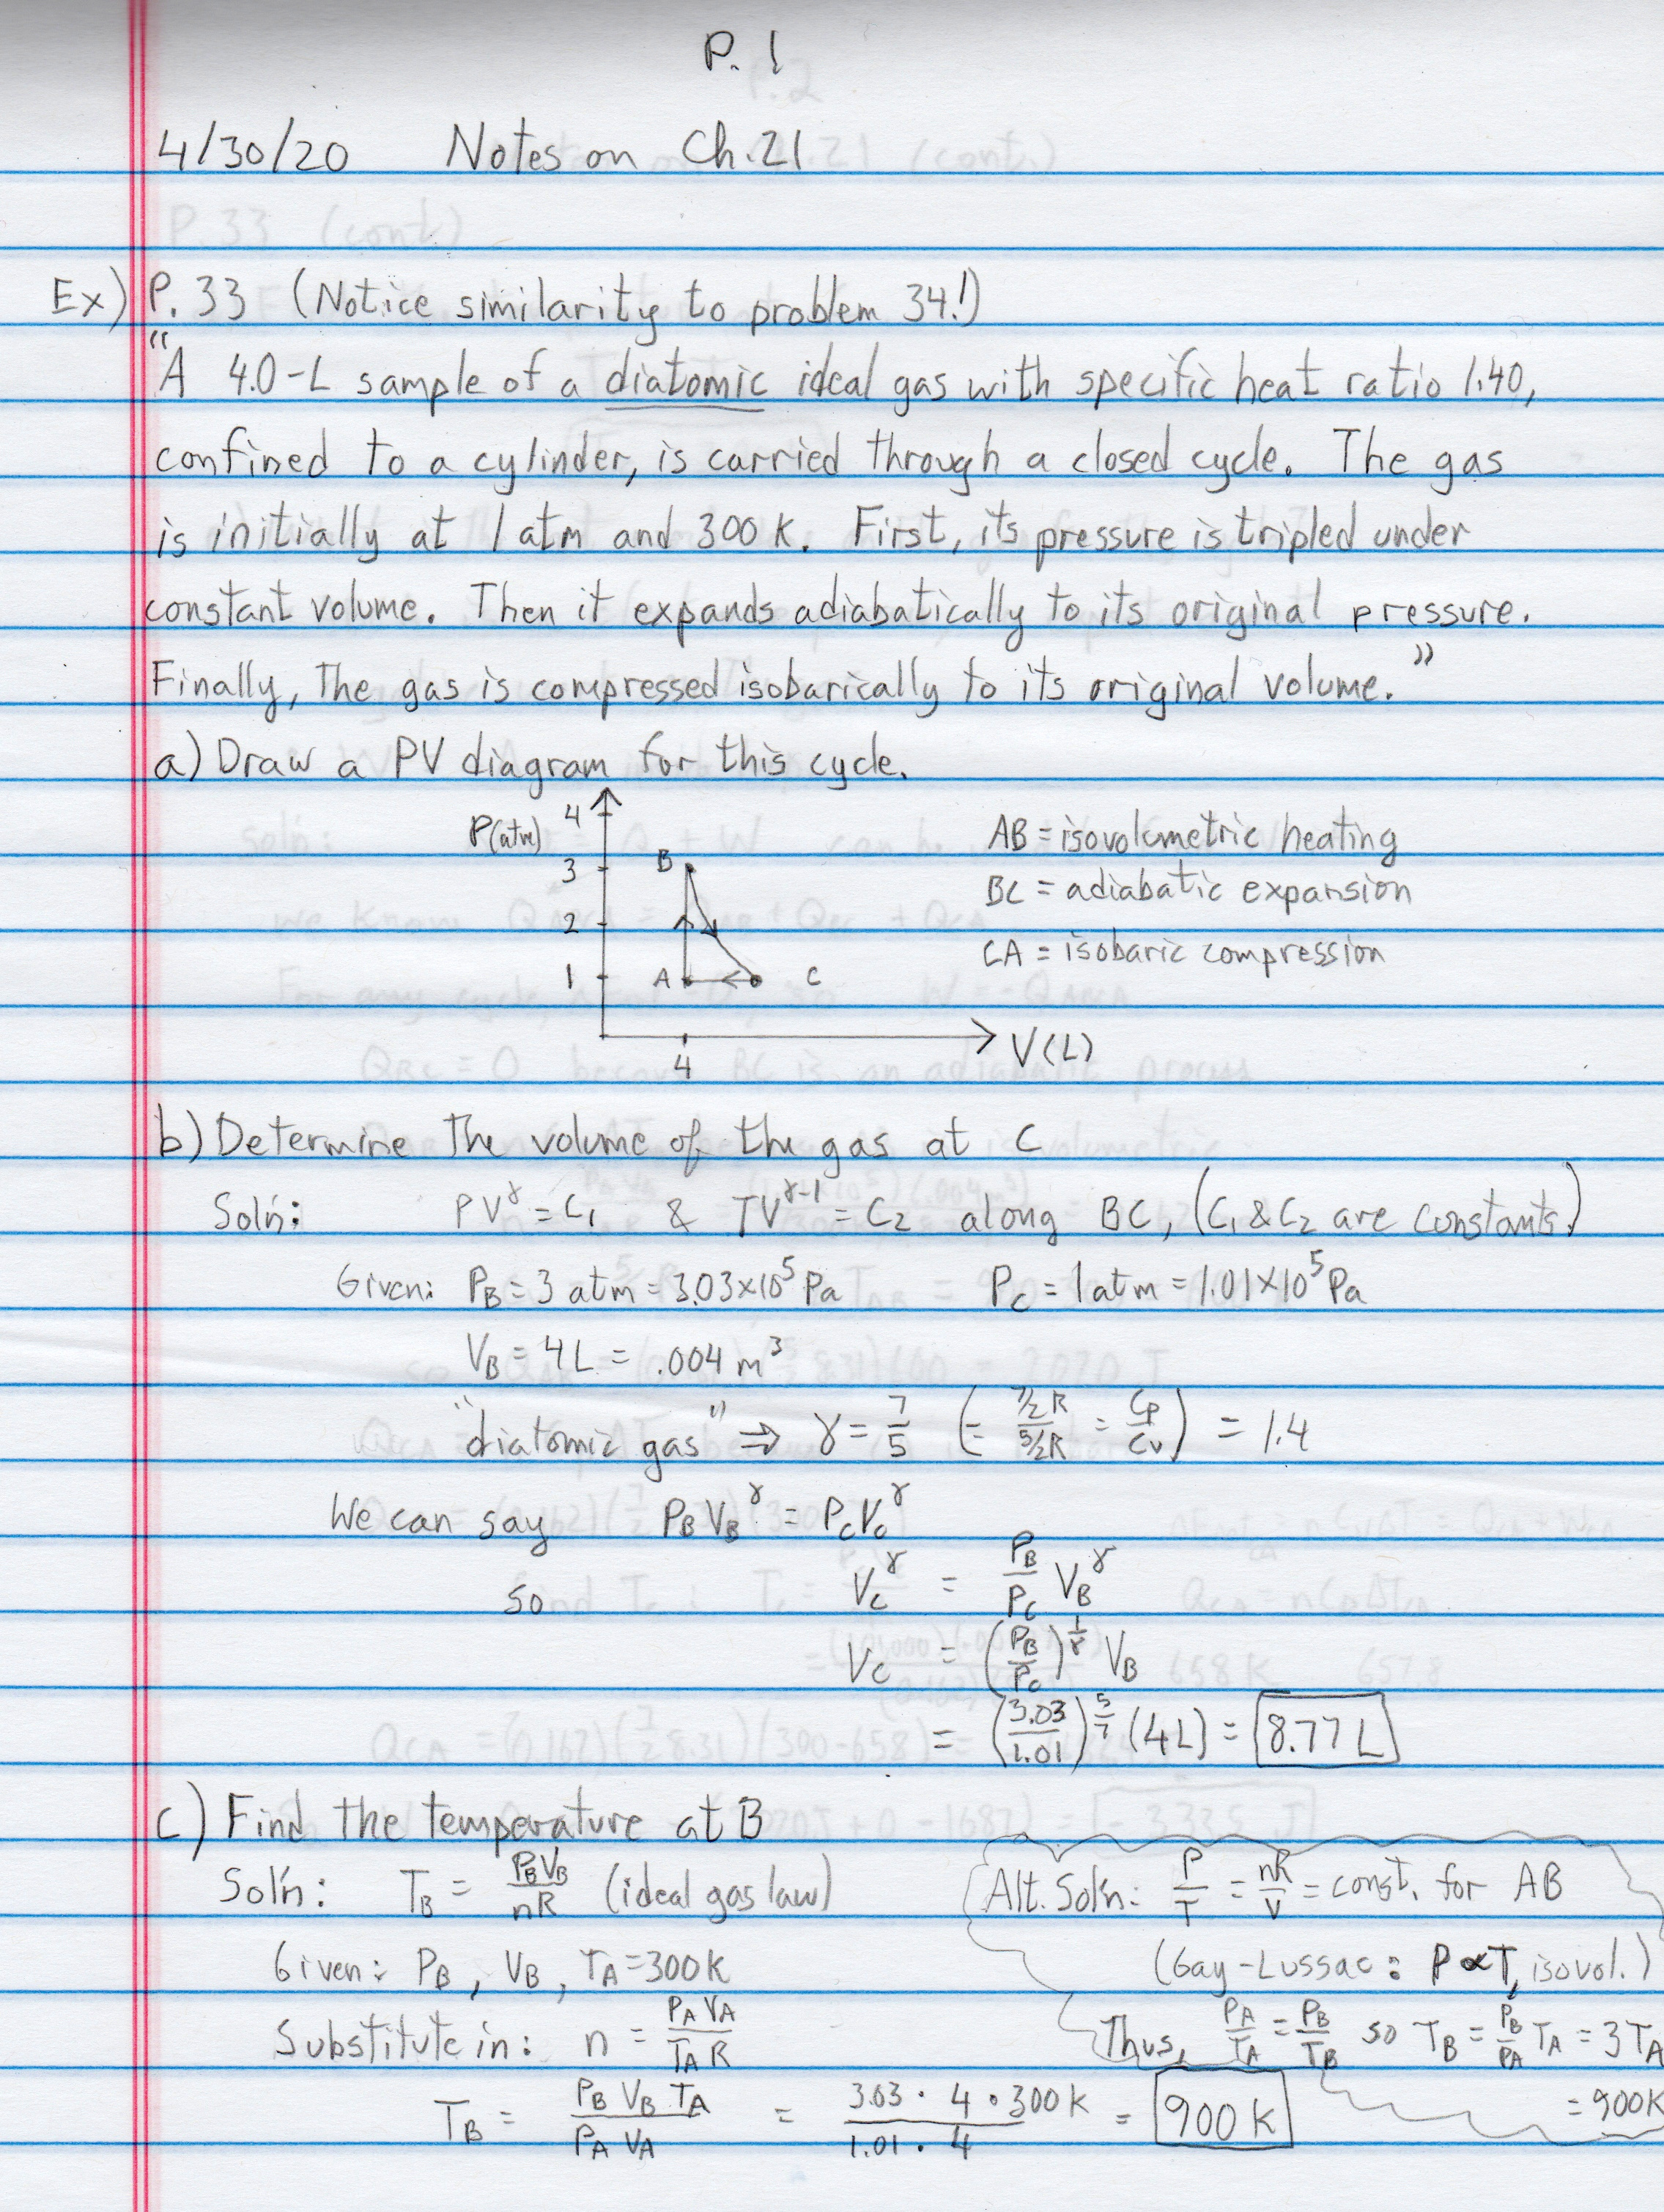 P. 1
4/30/20 Notes on Ch.21
Ex) P. 33 (Notice similarity to problem 34!)
"A 4.0-L sample of a diatomic ideal gas with specific heat ratio 1.40,
confined to a cylinder, is carried through a closed cycle. The gas
is initially at 1 atm and 300 K. First, its pressure is tripled under
constant volume. Then it expands adiabatically to its original pressure.
Finally, the gas is compressed isobarically to its original volume."
a) Draw a PV diagram for this cycle.
P(atm) 4
3 B
2
1 A C
4 V(L)
AB = isovolumetric heating
BC = adiabatic expansion
CA = isobaric compression
b) Determine the volume of the gas at C
Sol'n: PV^γ = C₁ & TV^(γ-1) = C₂ along BC, (C₁ & C₂ are constants.)
Given: P_B = 3 atm = 3.03×10⁵ Pa P_C = 1 atm = 1.01×10⁵ Pa
V_B = 4 L = .004 m³
"diatomic gas" ⇒ γ = 7/5 (= (7/2 R)/(5/2 R) = Cp/Cv) = 1.4
We can say P_B V_B^γ = P_C V_C^γ
so V_C^γ = P_B/P_C V_B^γ
V_C = (P_B/P_C)^(1/γ) V_B
= (3.03/1.01)^(5/7) (4 L) = 8.77 L
c) Find the temperature at B
Sol'n: T_B = P_B V_B / nR (ideal gas law)
Given: P_B, V_B, T_A = 300 K
Substitute in: n = P_A V_A / T_A R
T_B = P_B V_B T_A / P_A V_A = 3.03 · 4 · 300 K / 1.01 · 4 = 900 K
Alt. Sol'n: P/T = nR/V = const. for AB
(Gay-Lussac: P ∝ T, isovol.)
Thus, P_A/T_A = P_B/T_B so T_B = P_B/P_A T_A = 3 T_A
= 900K